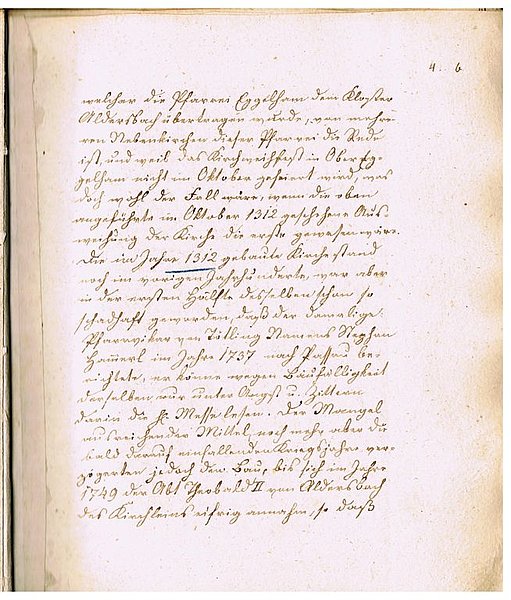 4. 6
welcher die Pfarrei Eggelham dem Kloster
Aldersbach übertragen wurde, von mehre-
ren Nebenkirchen dieser Pfarrei die Rede
ist, und weil das Kirchweihfest in Ober Eg-
gelham nicht im Oktober gefeiert wird, was
doch wohl der Fall wäre, wenn die oben
angeführte im Oktober 1312 geschehene Aus-
weihung der Kirche die erste gewesen wäre.
Die im Jahre 1312 gebaute Kirche stand
noch im vorigen Jahrhunderte, war aber
in der ersten Hälfte desselben schon so
schadhaft geworden, daß der damalige
Pfarrvikar von Namens Stephan
Hammerl im Jahre 1737 nach Passau be-
richtete, er könne wegen Baufälligkeit
derselben nur unter Angst u. Zittern
darin die hl. Messe lesen. Der Mangel
ausreichender Mittel, noch mehr aber die
bald darauf einfallenden Kriegsjahre ver-
zögerten jedoch den Bau, bis sich im Jahre
1749 der Abt Theobald II von Aldersbach
des Kirchleins eifrig annahm, so daß